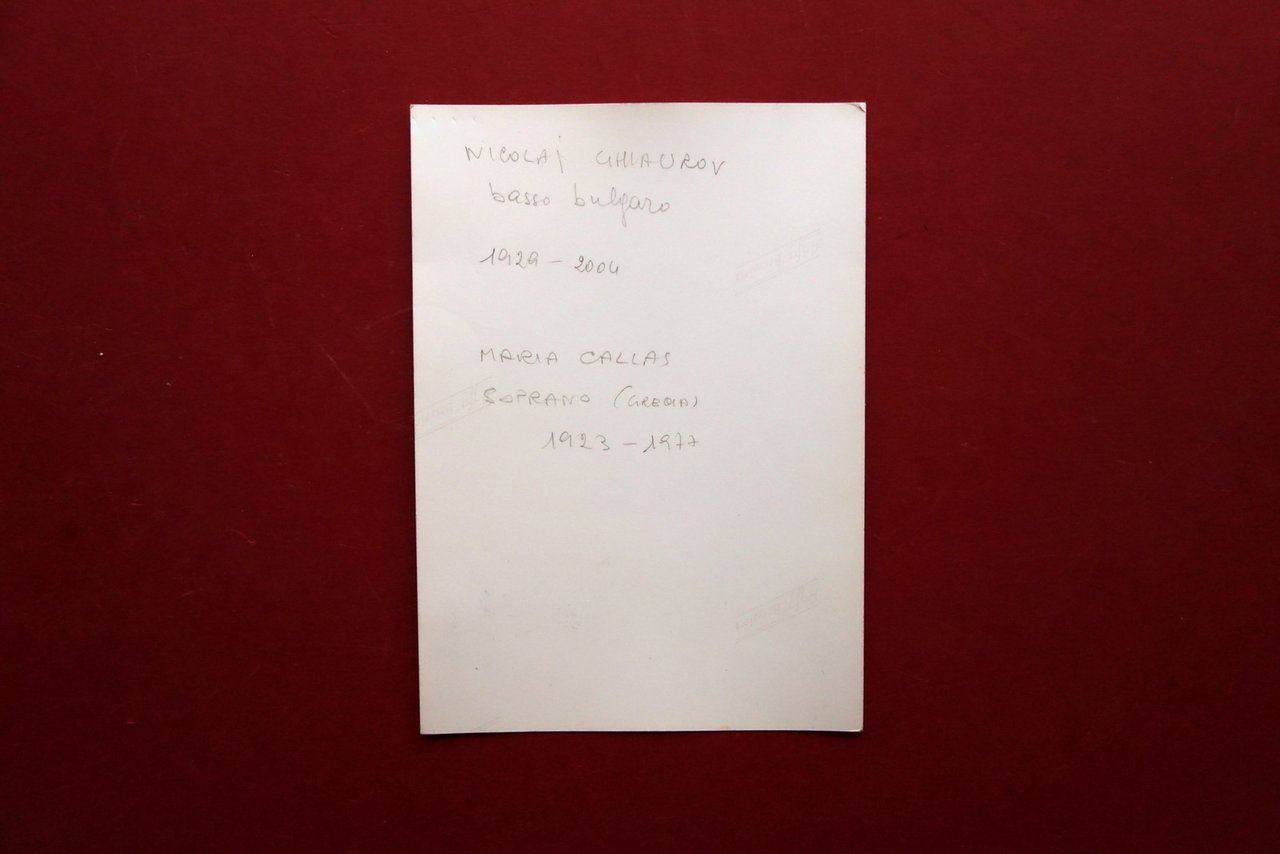 NICOLAJ GHIAUROV
basso bulgaro
1929 - 2004
MARIA CALLAS
SOPRANO (GRECIA)
1923 - 1977